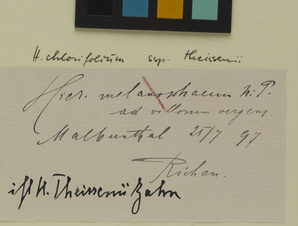 H. chlorifolium ssp. theissenii
Hier. melanophaeum N.P.
ad villosum vergens
Malbunthal 25/7 97
Richen.
ist H. Theissenii Zahn